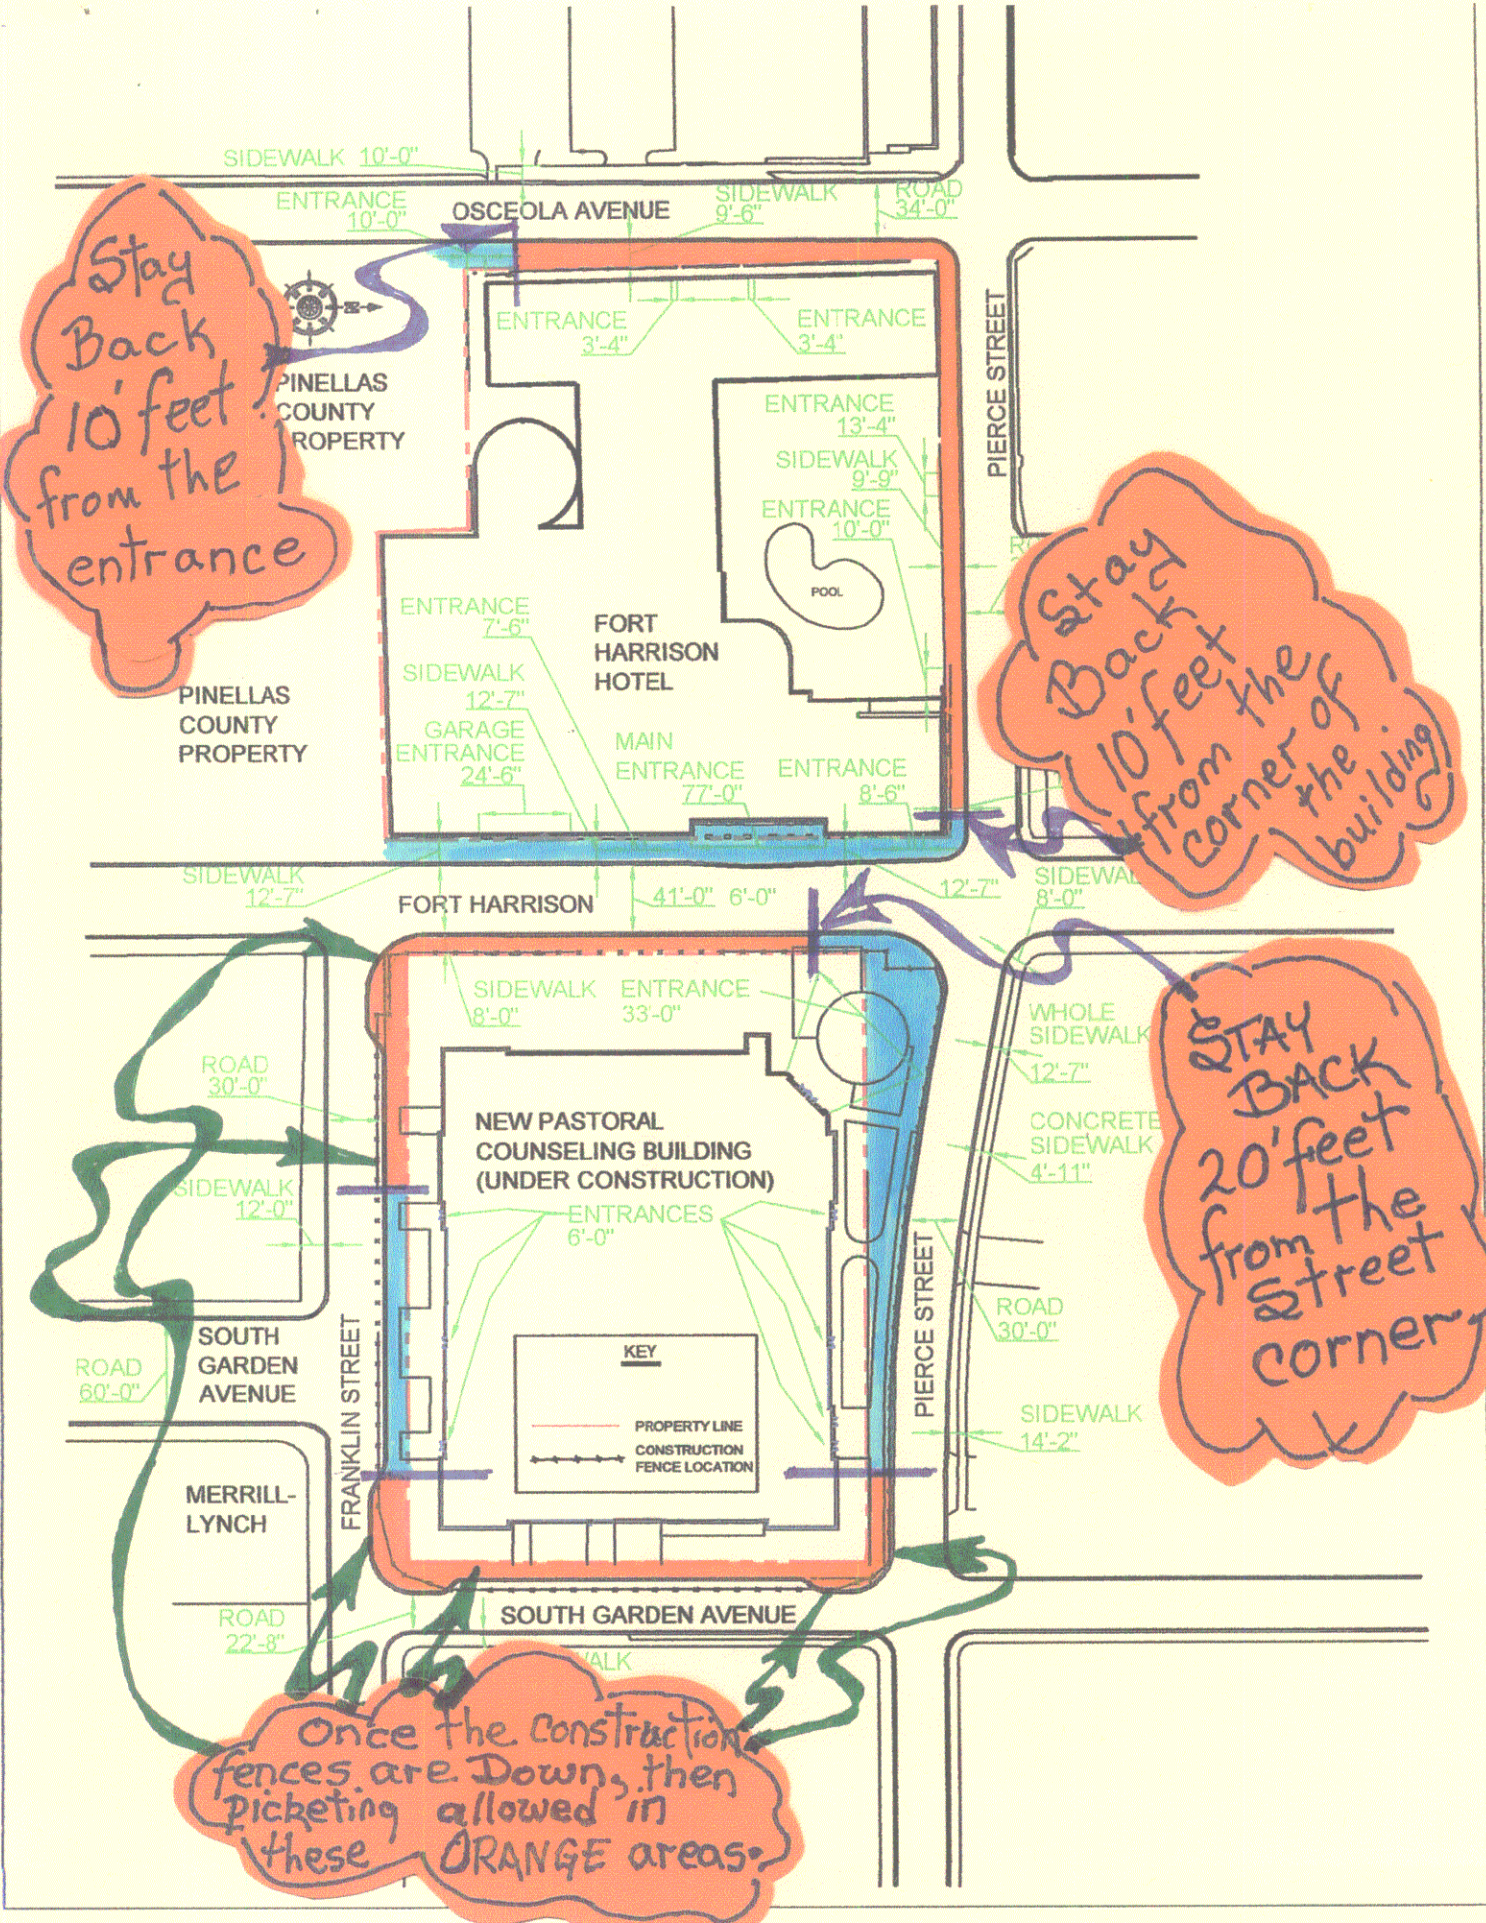 SIDEWALK 10'-0"
ENTRANCE
10'-0"
OSCEOLA AVENUE
SIDEWALK
9'-6"
ROAD
34'-0"
Stay
Back
10' feet
from the
entrance
N
PINELLAS
COUNTY
ROPERTY
ENTRANCE
3'-4"
ENTRANCE
3'-4"
PIERCE STREET
ENTRANCE
13'-4"
SIDEWALK
9'-9"
ENTRANCE
10'-0"
POOL
ENTRANCE
7'-6"
SIDEWALK
12'-7"
GARAGE
ENTRANCE
24'-6"
FORT
HARRISON
HOTEL
MAIN
ENTRANCE
77'-0"
ENTRANCE
8'-6"
PINELLAS
COUNTY
PROPERTY
Stay
Back
10' feet
from the
corner of
the
building
SIDEWALK
12'-7"
FORT HARRISON
41'-0" 6'-0"
12'-7"
8'-0"
SIDEWALK
8'-0"
ENTRANCE
33'-0"
WHOLE
SIDEWALK
12'-7"
CONCRETE
SIDEWALK
4'-11"
STAY
BACK
20' feet
from the
Street
corner
ROAD
30'-0"
SIDEWALK
12'-0"
NEW PASTORAL
COUNSELING BUILDING
(UNDER CONSTRUCTION)
ENTRANCES
6'-0"
PIERCE STREET
ROAD
30'-0"
SIDEWALK
14'-2"
SOUTH
GARDEN
AVENUE
ROAD
60'-0"
FRANKLIN STREET
KEY
PROPERTY LINE
CONSTRUCTION
FENCE LOCATION
MERRILL-
LYNCH
ROAD
22'-8"
SOUTH GARDEN AVENUE
Once the construction
fences are Down, then
picketing allowed in
these ORANGE areas.